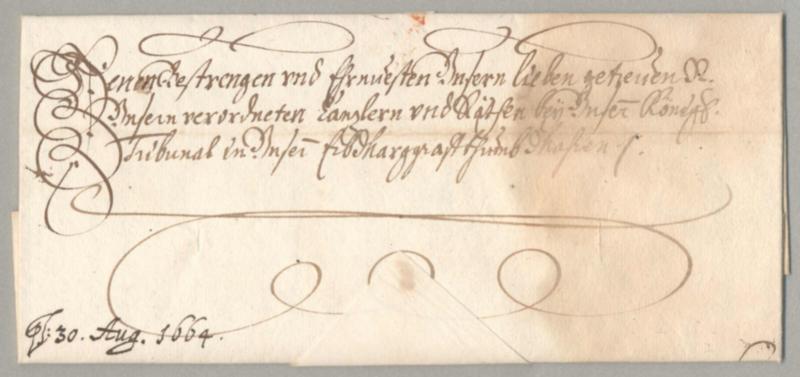 Denen Gestrengen vnd Ehrnuesten Vnsern lieben getreuen N.
Vnsern verordneten Canzlern vnd Räthen bey Vnserm Königl.
Tribunal in Vnserm Erbmarggrafthumb
30. Aug. 1664.